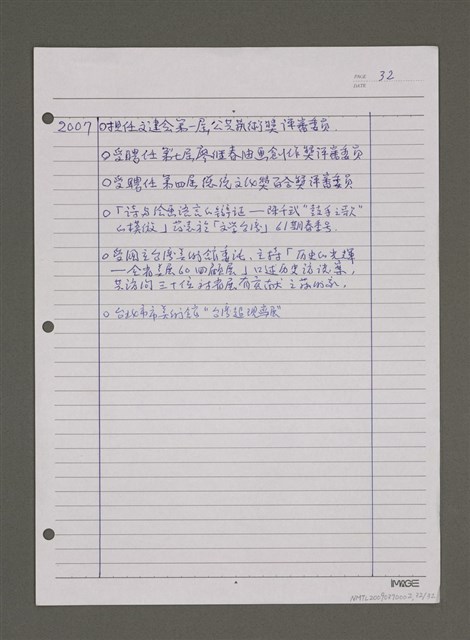 PAGE 32
DATE
2007 ○担任文建会第一屆,公共藝術獎評審委員.
○受聘任第七屆,廖继春油画創作獎評審委員
○受聘任第四屆傑傑文化獎百合獎評審委員
○「詩与绘画語言的辯证——陈千武"鼓手之歌"
的模倣」發表於「文学台湾」61期春季号.
○受国立台湾美術館委託,主持「历史的光輝
——全省美展60回顧展」口述历史訪談案,
共訪问三十位对省展有贡献之藝術家.
○台北市市美術館"台灣超現實展"
IMAGE
NMTL20090290002_32/32